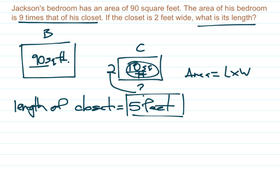 Jackson's bedroom has an area of 90 square feet. The area of his bedroom
is 9 times that of his closet. If the closet is 2 feet wide, what is its length?
B
C
90 sq ft.
2
10 sq ft
?
Area = L x W
length of closet = 5 feet